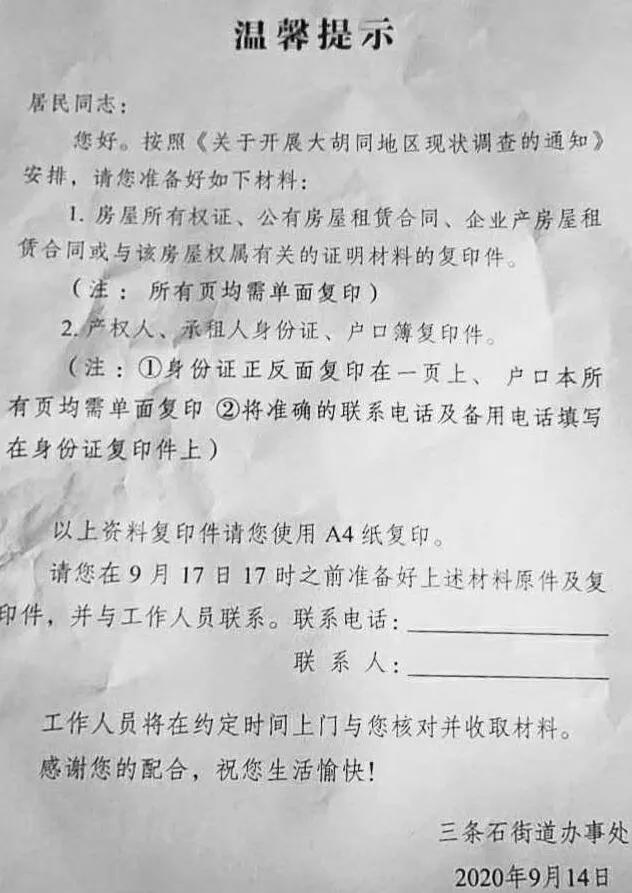 温馨提示
居民同志：
您好。按照《关于开展大胡同地区现状调查的通知》
安排，请您准备好如下材料：
1. 房屋所有权证、公有房屋租赁合同、企业产房屋租
赁合同或与该房屋权属有关的证明材料的复印件。
（注： 所有页均需单面复印）
2. 产权人、承租人身份证、户口簿复印件。
（注：①身份证正反面复印在一页上、 户口本所
有页均需单面复印 ②将准确的联系电话及备用电话填写
在身份证复印件上）
以上资料复印件请您使用 A4 纸复印。
请您在 9 月 17 日 17 时之前准备好上述材料原件及复
印件，并与工作人员联系。联系电话：
联 系 人：
工作人员将在约定时间上门与您核对并收取材料。
感谢您的配合，祝您生活愉快！
三条石街道办事处
2020年9月14日